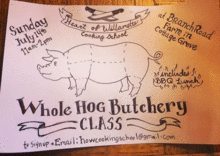 Sunday
July 14th
11am-2pm
Heart of Willamette
Cooking School
at BeanchRoad
Farm in
Cottage Grove
includes
BBQ Lunch
Whole Hog Butchery
CLASS
to signup • Email: howcookingschool@gmail.com